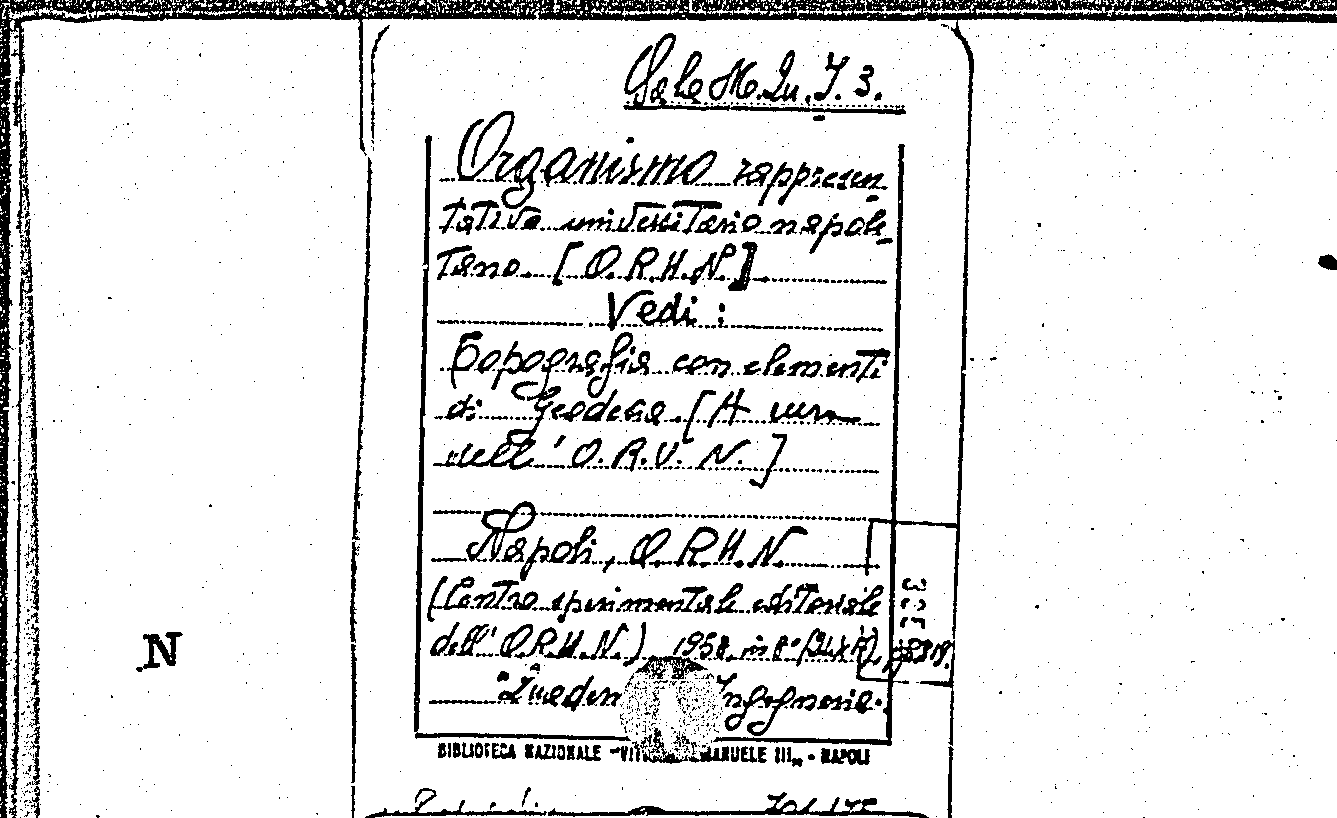 Sala M. Qu. J. 3.
Organismo rappresen-
tativo universitario napole-
tano. [O.R.U.N.]
Vedi :
Topografia con elementi
di Geodesia. [A cura
dell' O.R.U.N.]
Napoli, O.R.U.N.
(Centro sperimentale editoriale
dell' O.R.U.N.) 1958. in 8°
"Quaderni Ingegneria.
N
BIBLIOTECA NAZIONALE "VITT EMANUELE III„ - NAPOLI